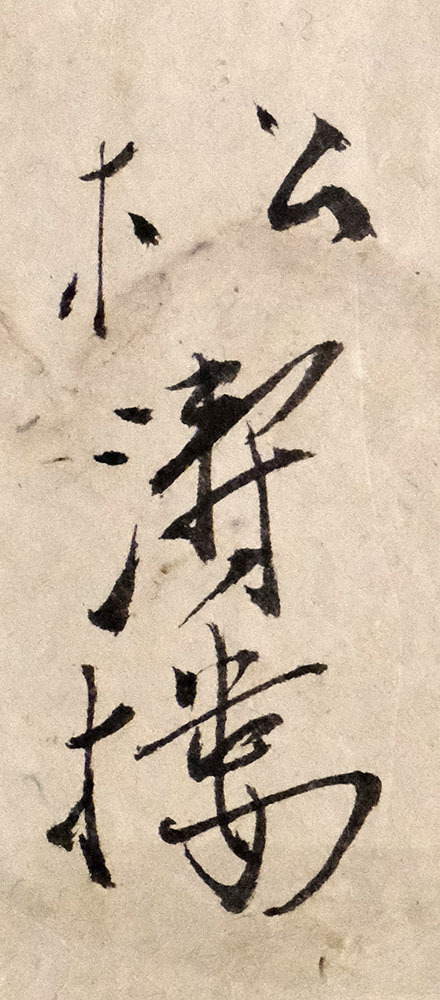 松濤樓